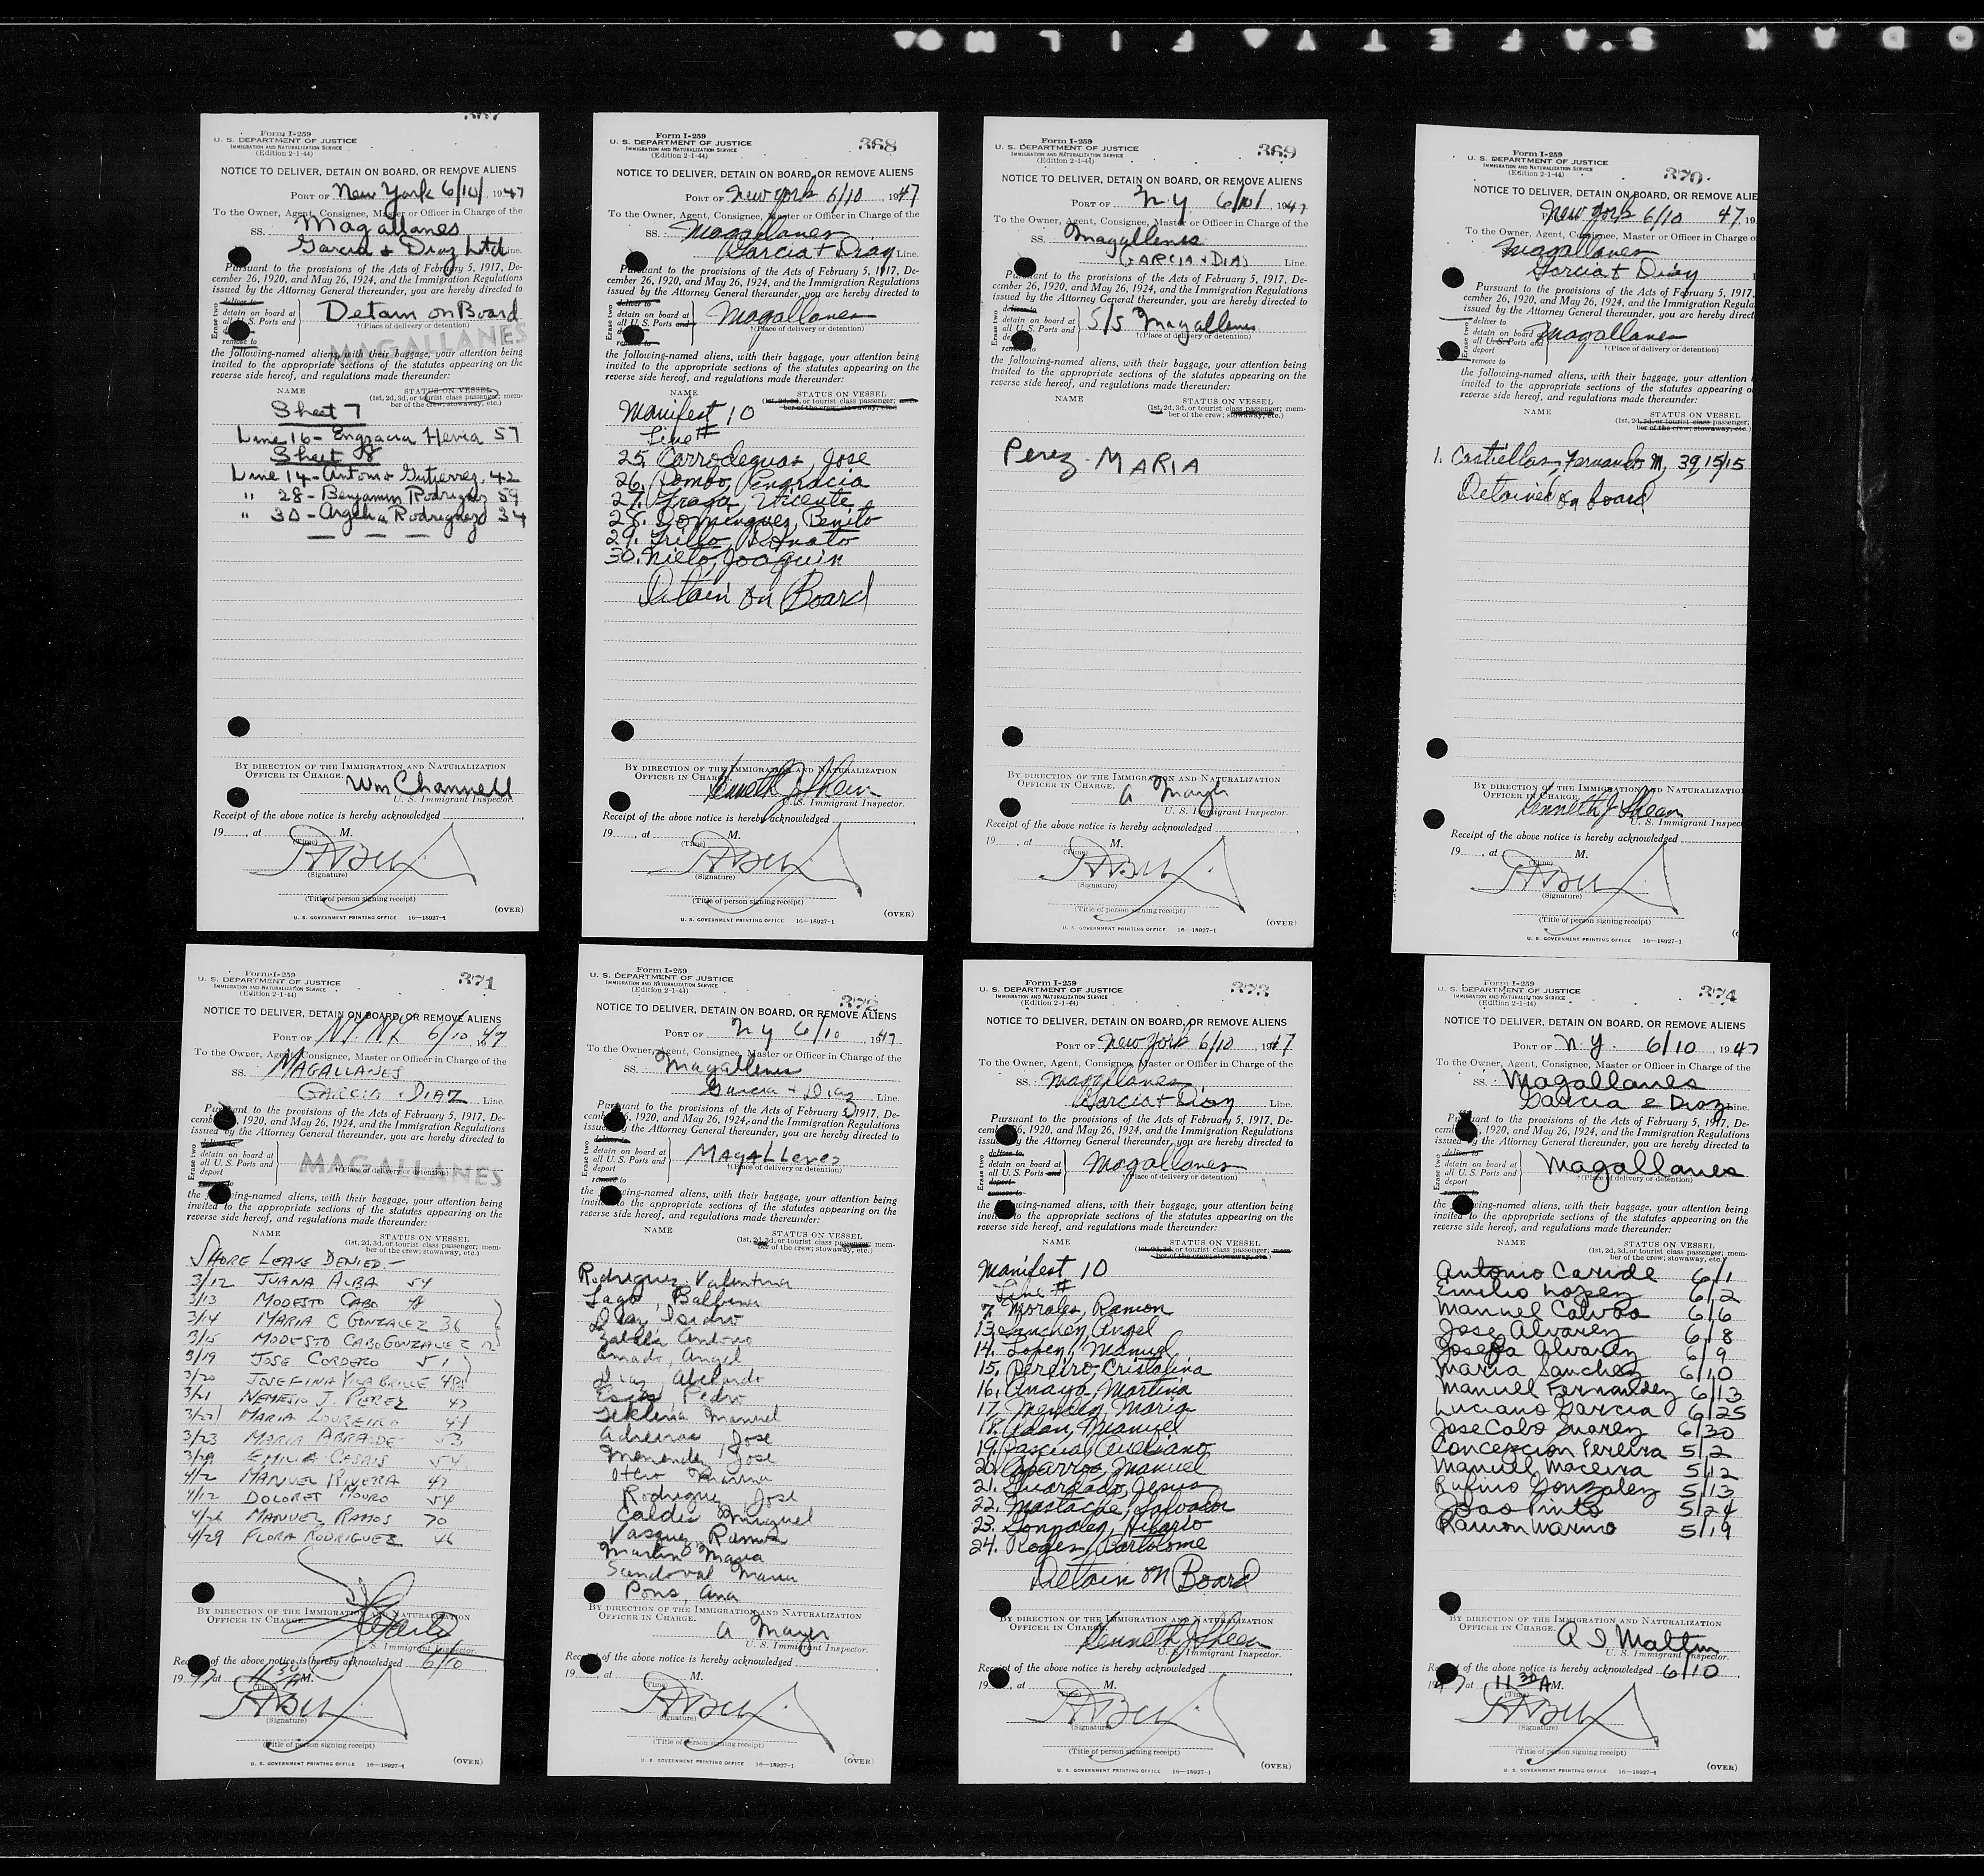 KODAK SAFETY FILM
367
Form I-259
U. S. DEPARTMENT OF JUSTICE
IMMIGRATION AND NATURALIZATION SERVICE
(Edition 2-1-44)
NOTICE TO DELIVER, DETAIN ON BOARD, OR REMOVE ALIENS
PORT OF New York 6/10/, 1947
To the Owner, Agent, Consignee, Master or Officer in Charge of the
SS. Magallanes
Garcia + Diaz Ltd Line.
Pursuant to the provisions of the Acts of February 5, 1917, De-
cember 26, 1920, and May 26, 1924, and the Immigration Regulations
issued by the Attorney General thereunder, you are hereby directed to
Erase two
deliver to
detain on board at
all U. S. Ports and
remove to
Detain on Board
†(Place of delivery or detention)
MAGALLANES
the following-named aliens, with their baggage, your attention being
invited to the appropriate sections of the statutes appearing on the
reverse side hereof, and regulations made thereunder:
NAME STATUS ON VESSEL
(1st, 2d, 3d, or tourist class passenger; mem-
ber of the crew; stowaway, etc.)
Sheet 7
Line 16 - Engracia Hevia 57
Sheet 8
Line 14 - Antonio Gutierrez 42
" 28 - Benjamin Rodriguez 59
" 30 - Argelia Rodriguez 34
BY DIRECTION OF THE IMMIGRATION AND NATURALIZATION
OFFICER IN CHARGE.
Wm Channell
U. S. Immigrant Inspector.
Receipt of the above notice is hereby acknowledged
19....., at M.
(Time)
(Signature)
(Title of person signing receipt)
U. S. GOVERNMENT PRINTING OFFICE 16—18927-1
(OVER)
368
Form I-259
U. S. DEPARTMENT OF JUSTICE
IMMIGRATION AND NATURALIZATION SERVICE
(Edition 2-1-44)
NOTICE TO DELIVER, DETAIN ON BOARD, OR REMOVE ALIENS
PORT OF New York 6/10, 1947
To the Owner, Agent, Consignee, Master or Officer in Charge of the
SS. Magallanes
Garcia + Diaz Line.
Pursuant to the provisions of the Acts of February 5, 1917, De-
cember 26, 1920, and May 26, 1924, and the Immigration Regulations
issued by the Attorney General thereunder, you are hereby directed to
Erase two
deliver to
detain on board at
all U. S. Ports and
remove to
Magallanes
†(Place of delivery or detention)
the following-named aliens, with their baggage, your attention being
invited to the appropriate sections of the statutes appearing on the
reverse side hereof, and regulations made thereunder:
NAME STATUS ON VESSEL
(1st, 2d, 3d, or tourist class passenger; mem-
ber of the crew; stowaway, etc.)
Manifest 10
Line #
25. Carrodeguas, Jose
26. Pombo, Engracia
27. Fraga, Vicente
28. Dominguez, Benito
29. Trillo, Donato
30. Nieto, Joaquin
Detain on Board
BY DIRECTION OF THE IMMIGRATION AND NATURALIZATION
OFFICER IN CHARGE.
Kenneth J Sheen
U. S. Immigrant Inspector.
Receipt of the above notice is hereby acknowledged
19....., at M.
(Time)
(Signature)
(Title of person signing receipt)
U. S. GOVERNMENT PRINTING OFFICE 16—18927-1
(OVER)
369
Form I-259
U. S. DEPARTMENT OF JUSTICE
IMMIGRATION AND NATURALIZATION SERVICE
(Edition 2-1-44)
NOTICE TO DELIVER, DETAIN ON BOARD, OR REMOVE ALIENS
PORT OF N Y 6/10/, 1947
To the Owner, Agent, Consignee, Master or Officer in Charge of the
SS. Magallenes
GARCIA + DIAS Line.
Pursuant to the provisions of the Acts of February 5, 1917, De-
cember 26, 1920, and May 26, 1924, and the Immigration Regulations
issued by the Attorney General thereunder, you are hereby directed to
Erase two
deliver to
detain on board at
all U. S. Ports and
remove to
S/S Magallenes
†(Place of delivery or detention)
the following-named aliens, with their baggage, your attention being
invited to the appropriate sections of the statutes appearing on the
reverse side hereof, and regulations made thereunder:
NAME STATUS ON VESSEL
(1st, 2d, 3d, or tourist class passenger; mem-
ber of the crew; stowaway, etc.)
Perez - MARIA
BY DIRECTION OF THE IMMIGRATION AND NATURALIZATION
OFFICER IN CHARGE.
A Mayer
U. S. Immigrant Inspector.
Receipt of the above notice is hereby acknowledged
19....., at M.
(Time)
(Signature)
(Title of person signing receipt)
U. S. GOVERNMENT PRINTING OFFICE 16—18927-1
(OVER)
370
Form I-259
U. S. DEPARTMENT OF JUSTICE
IMMIGRATION AND NATURALIZATION SERVICE
(Edition 2-1-44)
NOTICE TO DELIVER, DETAIN ON BOARD, OR REMOVE ALIE
New York 6/10 47, 19
To the Owner, Agent, Consignee, Master or Officer in Charge o
Magallanes
Garcia + Diaz
Pursuant to the provisions of the Acts of February 5, 1917,
cember 26, 1920, and May 26, 1924, and the Immigration Regula
issued by the Attorney General thereunder, you are hereby direct
Erase two
deliver to
detain on board at
all U. S. Ports and
deport
remove to
Magallanes
†(Place of delivery or detention)
the following-named aliens, with their baggage, your attention
invited to the appropriate sections of the statutes appearing o
reverse side hereof, and regulations made thereunder:
NAME STATUS ON VESSEL
(1st, 2d, 3d, or tourist class passenger;
ber of the crew; stowaway, etc.)
1. Castiellas, Fernando M, 39, 15/15
Detained on board
BY DIRECTION OF THE IMMIGRATION AND NATURALIZATIO
OFFICER IN CHARGE.
Kenneth J Sheen
U. S. Immigrant Inspec
Receipt of the above notice is hereby acknowledged
19....., at M.
(Time)
(Signature)
(Title of person signing receipt)
U. S. GOVERNMENT PRINTING OFFICE 16—18927-1
371
Form I-259
U. S. DEPARTMENT OF JUSTICE
IMMIGRATION AND NATURALIZATION SERVICE
(Edition 2-1-44)
NOTICE TO DELIVER, DETAIN ON BOARD, OR REMOVE ALIENS
PORT OF NY. NY 6/10 47
To the Owner, Agent, Consignee, Master or Officer in Charge of the
SS. MAGALLANES
GARCIA + DIAZ Line.
Pursuant to the provisions of the Acts of February 5, 1917, De-
cember 26, 1920, and May 26, 1924, and the Immigration Regulations
issued by the Attorney General thereunder, you are hereby directed to
Erase two
deliver to
detain on board at
all U. S. Ports and
deport
MAGALLANES
†(Place of delivery or detention)
the following-named aliens, with their baggage, your attention being
invited to the appropriate sections of the statutes appearing on the
reverse side hereof, and regulations made thereunder:
NAME STATUS ON VESSEL
(1st, 2d, 3d, or tourist class passenger; mem-
ber of the crew; stowaway, etc.)
SHORE LEAVE DENIED -
3/12 JUANA ALBA 54
3/13 MODESTO CABO
3/14 MARIA C GONZALEZ 36
3/15 MODESTO CABO GONZALEZ
3/19 JOSE CORDERO 51
3/20 JOSEFINA VILABRILLE 48
3/21 NEMESIO J. PEREZ 47
3/22 MARIA LOUREIRO 44
3/23 MARIA ABRALDE 53
3/29 EMILIA CASAIS 54
4/2 MANUEL RIVERA 47
4/12 DOLORES MOURO 54
4/26 MANUEL RAMOS 70
4/29 FLORA RODRIGUEZ 46
BY DIRECTION OF THE IMMIGRATION AND NATURALIZATION
OFFICER IN CHARGE.
U. S. Immigrant Inspector.
Receipt of the above notice is hereby acknowledged 6/10
1947 at 11 30 A M.
(Time)
(Signature)
(Title of person signing receipt)
U. S. GOVERNMENT PRINTING OFFICE 16—18927-1
(OVER)
372
Form I-259
U. S. DEPARTMENT OF JUSTICE
IMMIGRATION AND NATURALIZATION SERVICE
(Edition 2-1-44)
NOTICE TO DELIVER, DETAIN ON BOARD, OR REMOVE ALIENS
PORT OF N Y 6/10, 1947
To the Owner, Agent, Consignee, Master or Officer in Charge of the
SS. Magallenes
Garcia + Diaz Line.
Pursuant to the provisions of the Acts of February 5, 1917, De-
cember 26, 1920, and May 26, 1924, and the Immigration Regulations
issued by the Attorney General thereunder, you are hereby directed to
Erase two
deliver to
detain on board at
all U. S. Ports and
deport
remove to
MAGALLenes
†(Place of delivery or detention)
the following-named aliens, with their baggage, your attention being
invited to the appropriate sections of the statutes appearing on the
reverse side hereof, and regulations made thereunder:
NAME STATUS ON VESSEL
(1st, 2d, 3d, or tourist class passenger; mem-
ber of the crew; stowaway, etc.)
Rodriguez, Valentina
Lago, Balbina
Diaz, Isidro
Zabala Antonio
Amado, Angel
Diaz, Abelardo
Pedro
Manuel
Jose
Menendez, Jose
Otero Marina
Rodriguez, Jose
Caldes Miguel
Vasquez, Ramon
Martin Maria
Sandoval Maria
Pons, Ana
BY DIRECTION OF THE IMMIGRATION AND NATURALIZATION
OFFICER IN CHARGE.
A Mayer
U. S. Immigrant Inspector.
Receipt of the above notice is hereby acknowledged
19....., at M.
(Time)
(Signature)
(Title of person signing receipt)
U. S. GOVERNMENT PRINTING OFFICE 16—18927-1
(OVER)
373
Form I-259
U. S. DEPARTMENT OF JUSTICE
IMMIGRATION AND NATURALIZATION SERVICE
(Edition 2-1-44)
NOTICE TO DELIVER, DETAIN ON BOARD, OR REMOVE ALIENS
PORT OF New York 6/10, 1947
To the Owner, Agent, Consignee, Master or Officer in Charge of the
SS. Magallanes
Garcia + Diaz Line.
Pursuant to the provisions of the Acts of February 5, 1917, De-
cember 26, 1920, and May 26, 1924, and the Immigration Regulations
issued by the Attorney General thereunder, you are hereby directed to
Erase two
deliver to
detain on board at
all U. S. Ports and
deport
remove to
Magallanes
†(Place of delivery or detention)
the following-named aliens, with their baggage, your attention being
invited to the appropriate sections of the statutes appearing on the
reverse side hereof, and regulations made thereunder:
NAME STATUS ON VESSEL
(1st, 2d, 3d, or tourist class passenger; mem-
ber of the crew; stowaway, etc.)
Manifest 10
Line #
7. Morales, Ramon
13. Sanchez, Angel
14. Lopez, Manuel
15. Pereiro, Cristalina
16. Anaya, Martina
17. Mendez, Maria
18. Adan, Manuel
19. Pascual, Aureliano
20. Aparros, Manuel
21. Guardado, Jesus
22. Mastache, Salvador
23. Gonzalez, Hilario
24. Roges, Bartolome
Detain on Board
BY DIRECTION OF THE IMMIGRATION AND NATURALIZATION
OFFICER IN CHARGE.
Kenneth J Sheen
U. S. Immigrant Inspector.
Receipt of the above notice is hereby acknowledged
19....., at M.
(Time)
(Signature)
(Title of person signing receipt)
U. S. GOVERNMENT PRINTING OFFICE 16—18927-1
(OVER)
374
Form I-259
U. S. DEPARTMENT OF JUSTICE
IMMIGRATION AND NATURALIZATION SERVICE
(Edition 2-1-44)
NOTICE TO DELIVER, DETAIN ON BOARD, OR REMOVE ALIENS
PORT OF N.Y. 6/10, 1947
To the Owner, Agent, Consignee, Master or Officer in Charge of the
SS. Magallanes
Garcia e Diaz Line.
Pursuant to the provisions of the Acts of February 5, 1917, De-
cember 26, 1920, and May 26, 1924, and the Immigration Regulations
issued by the Attorney General thereunder, you are hereby directed to
Erase two
deliver to
detain on board at
all U. S. Ports and
deport
Magallanes
†(Place of delivery or detention)
the following-named aliens, with their baggage, your attention being
invited to the appropriate sections of the statutes appearing on the
reverse side hereof, and regulations made thereunder:
NAME STATUS ON VESSEL
(1st, 2d, 3d, or tourist class passenger; mem-
ber of the crew; stowaway, etc.)
Antonio Caride 6/1
Emilio Lopez 6/2
Manuel Calvoa 6/6
Jose Alvarez 6/8
Josefa Alvarez 6/9
Maria Sanchez 6/10
Manuel Fernandez 6/13
Luciano Garcia 6/25
Jose Cabo Suarez 6/30
Concepcion Fereira 5/2
Manuel Maceira 5/12
Rufino Gonzalez 5/13
Joao Pinto 5/24
Ramon Marino 5/19
BY DIRECTION OF THE IMMIGRATION AND NATURALIZATION
OFFICER IN CHARGE.
U. S. Immigrant Inspector.
Receipt of the above notice is hereby acknowledged 6/10
1947 at 11 30 A M.
(Time)
(Signature)
(Title of person signing receipt)
U. S. GOVERNMENT PRINTING OFFICE 16—18927-1
(OVER)